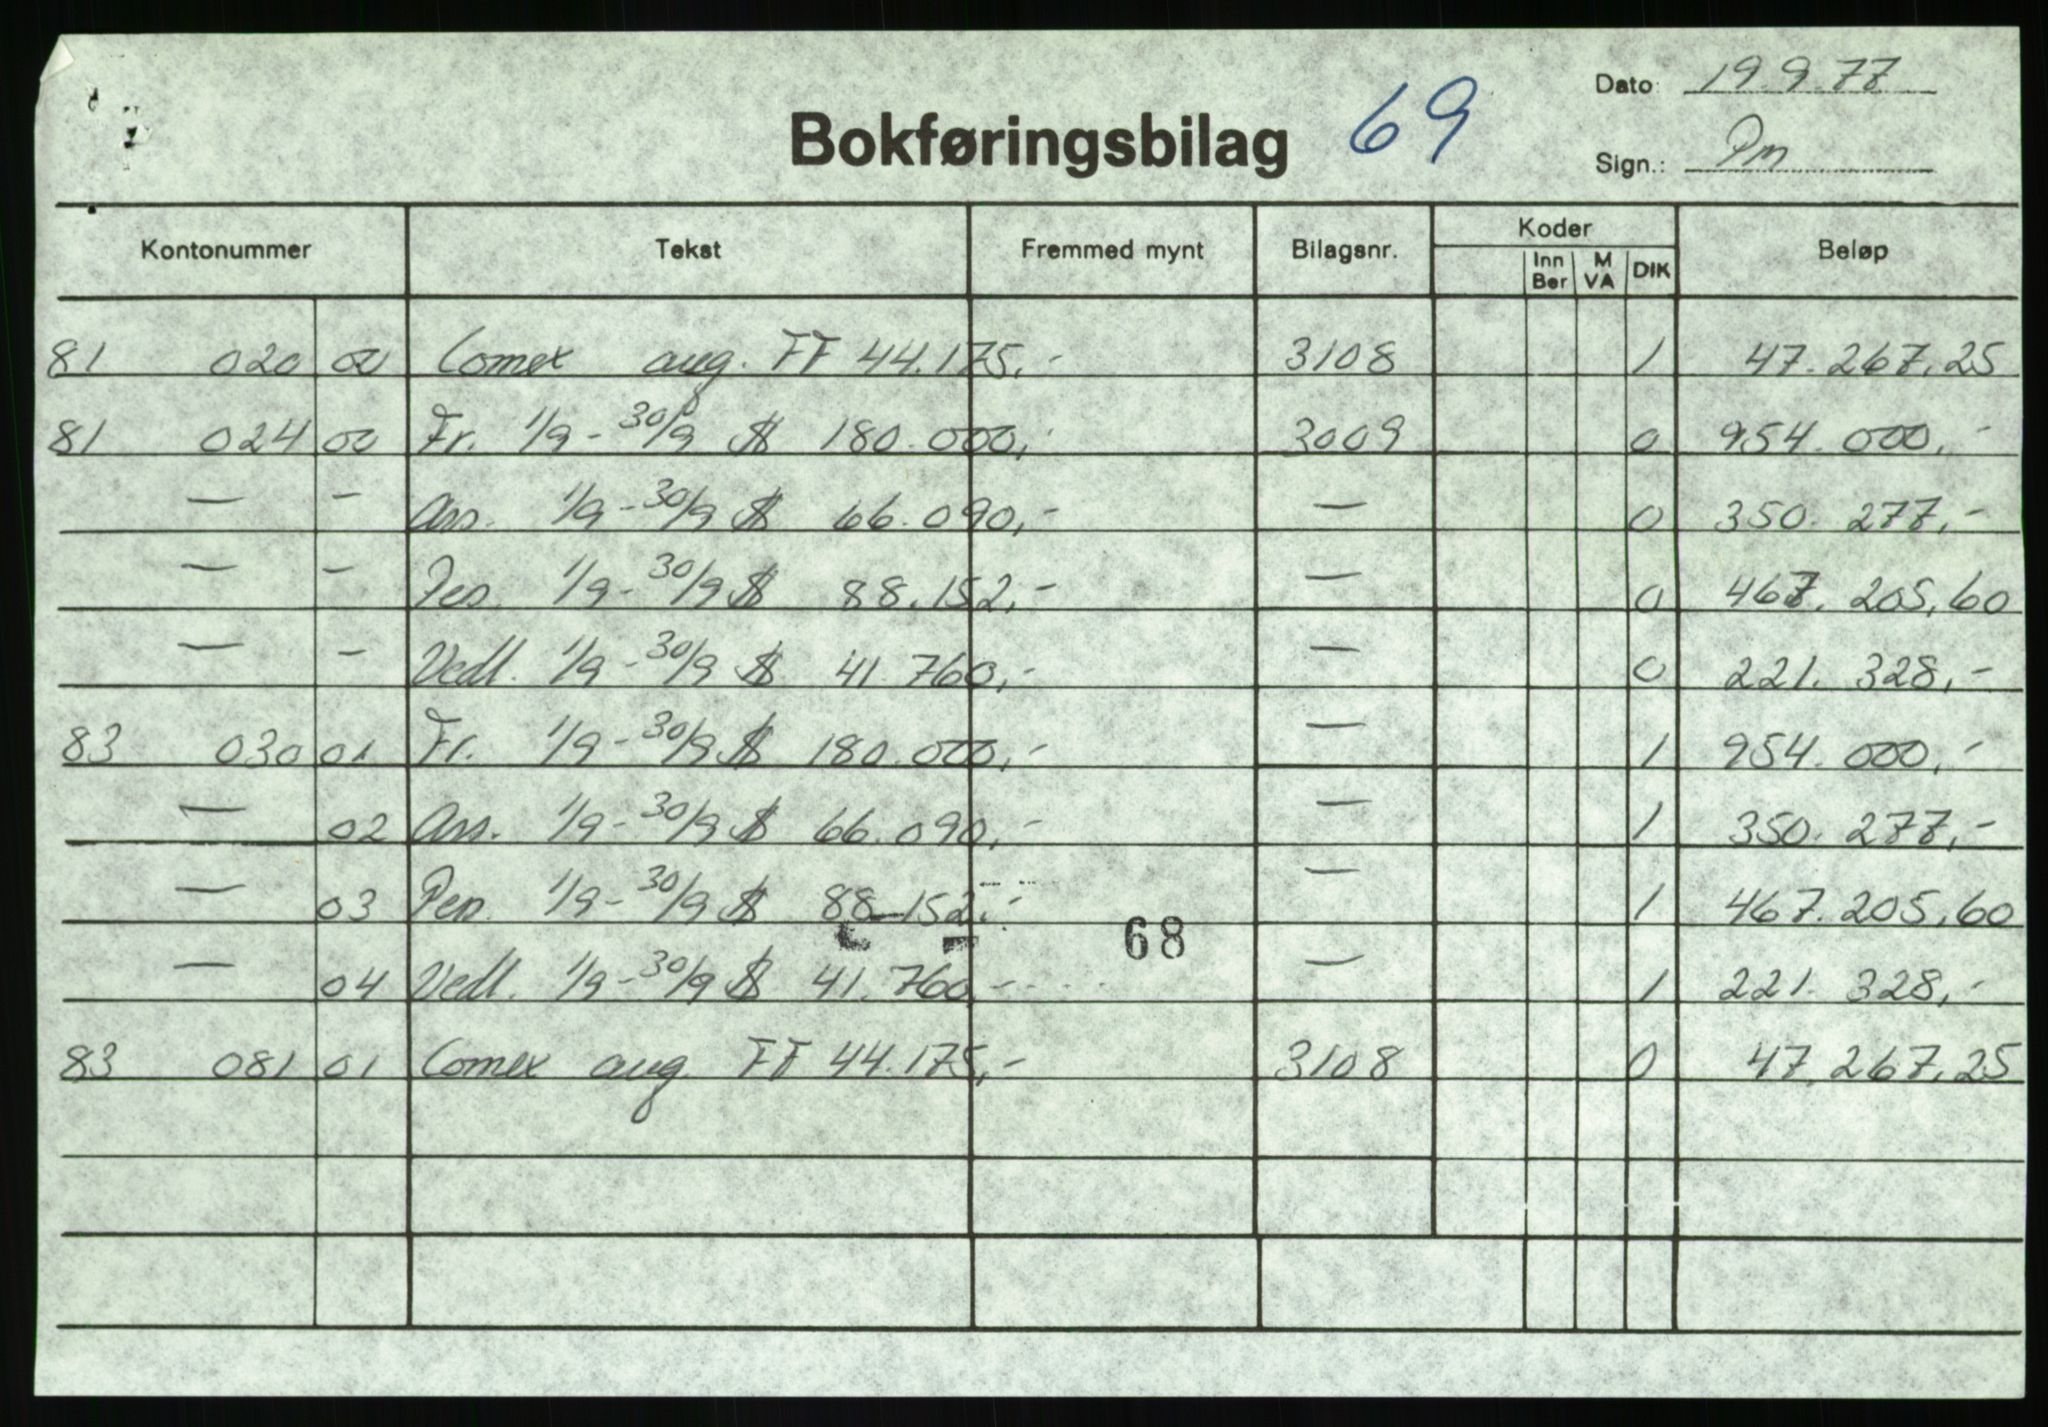 Dato: 19.9.77
Bokføringsbilag 69
Sign.: Pm
Kontonummer Tekst Fremmed mynt Bilagsnr. Koder Beløp
Inn Ber M VA DIK
81 020 00 Comex aug. FF 44.175,- 3108 1 47.267,25
81 024 00 Fr. 1/9-30/9 $ 180.000,- 3009 0 954.000,-
— - Ass. 1/9-30/9 $ 66.090,- — 0 350.277,-
— - Pen. 1/9-30/9 $ 88.152,- — 0 467.205,60
— - Vedl. 1/9-30/9 $ 41.760,- — 0 221.328,-
83 030 01 Fr. 1/9-30/9 $ 180.000,- — 1 954.000,-
— 02 Ass. 1/9-30/9 $ 66.090,- — 1 350.277,-
— 03 Pen. 1/9-30/9 $ 88.152,- — 1 467.205,60
68
— 04 Vedl. 1/9-30/9 $ 41.760,- — 1 221.328,-
83 081 01 Comex aug. FF 44.175,- 3108 0 47.267,25